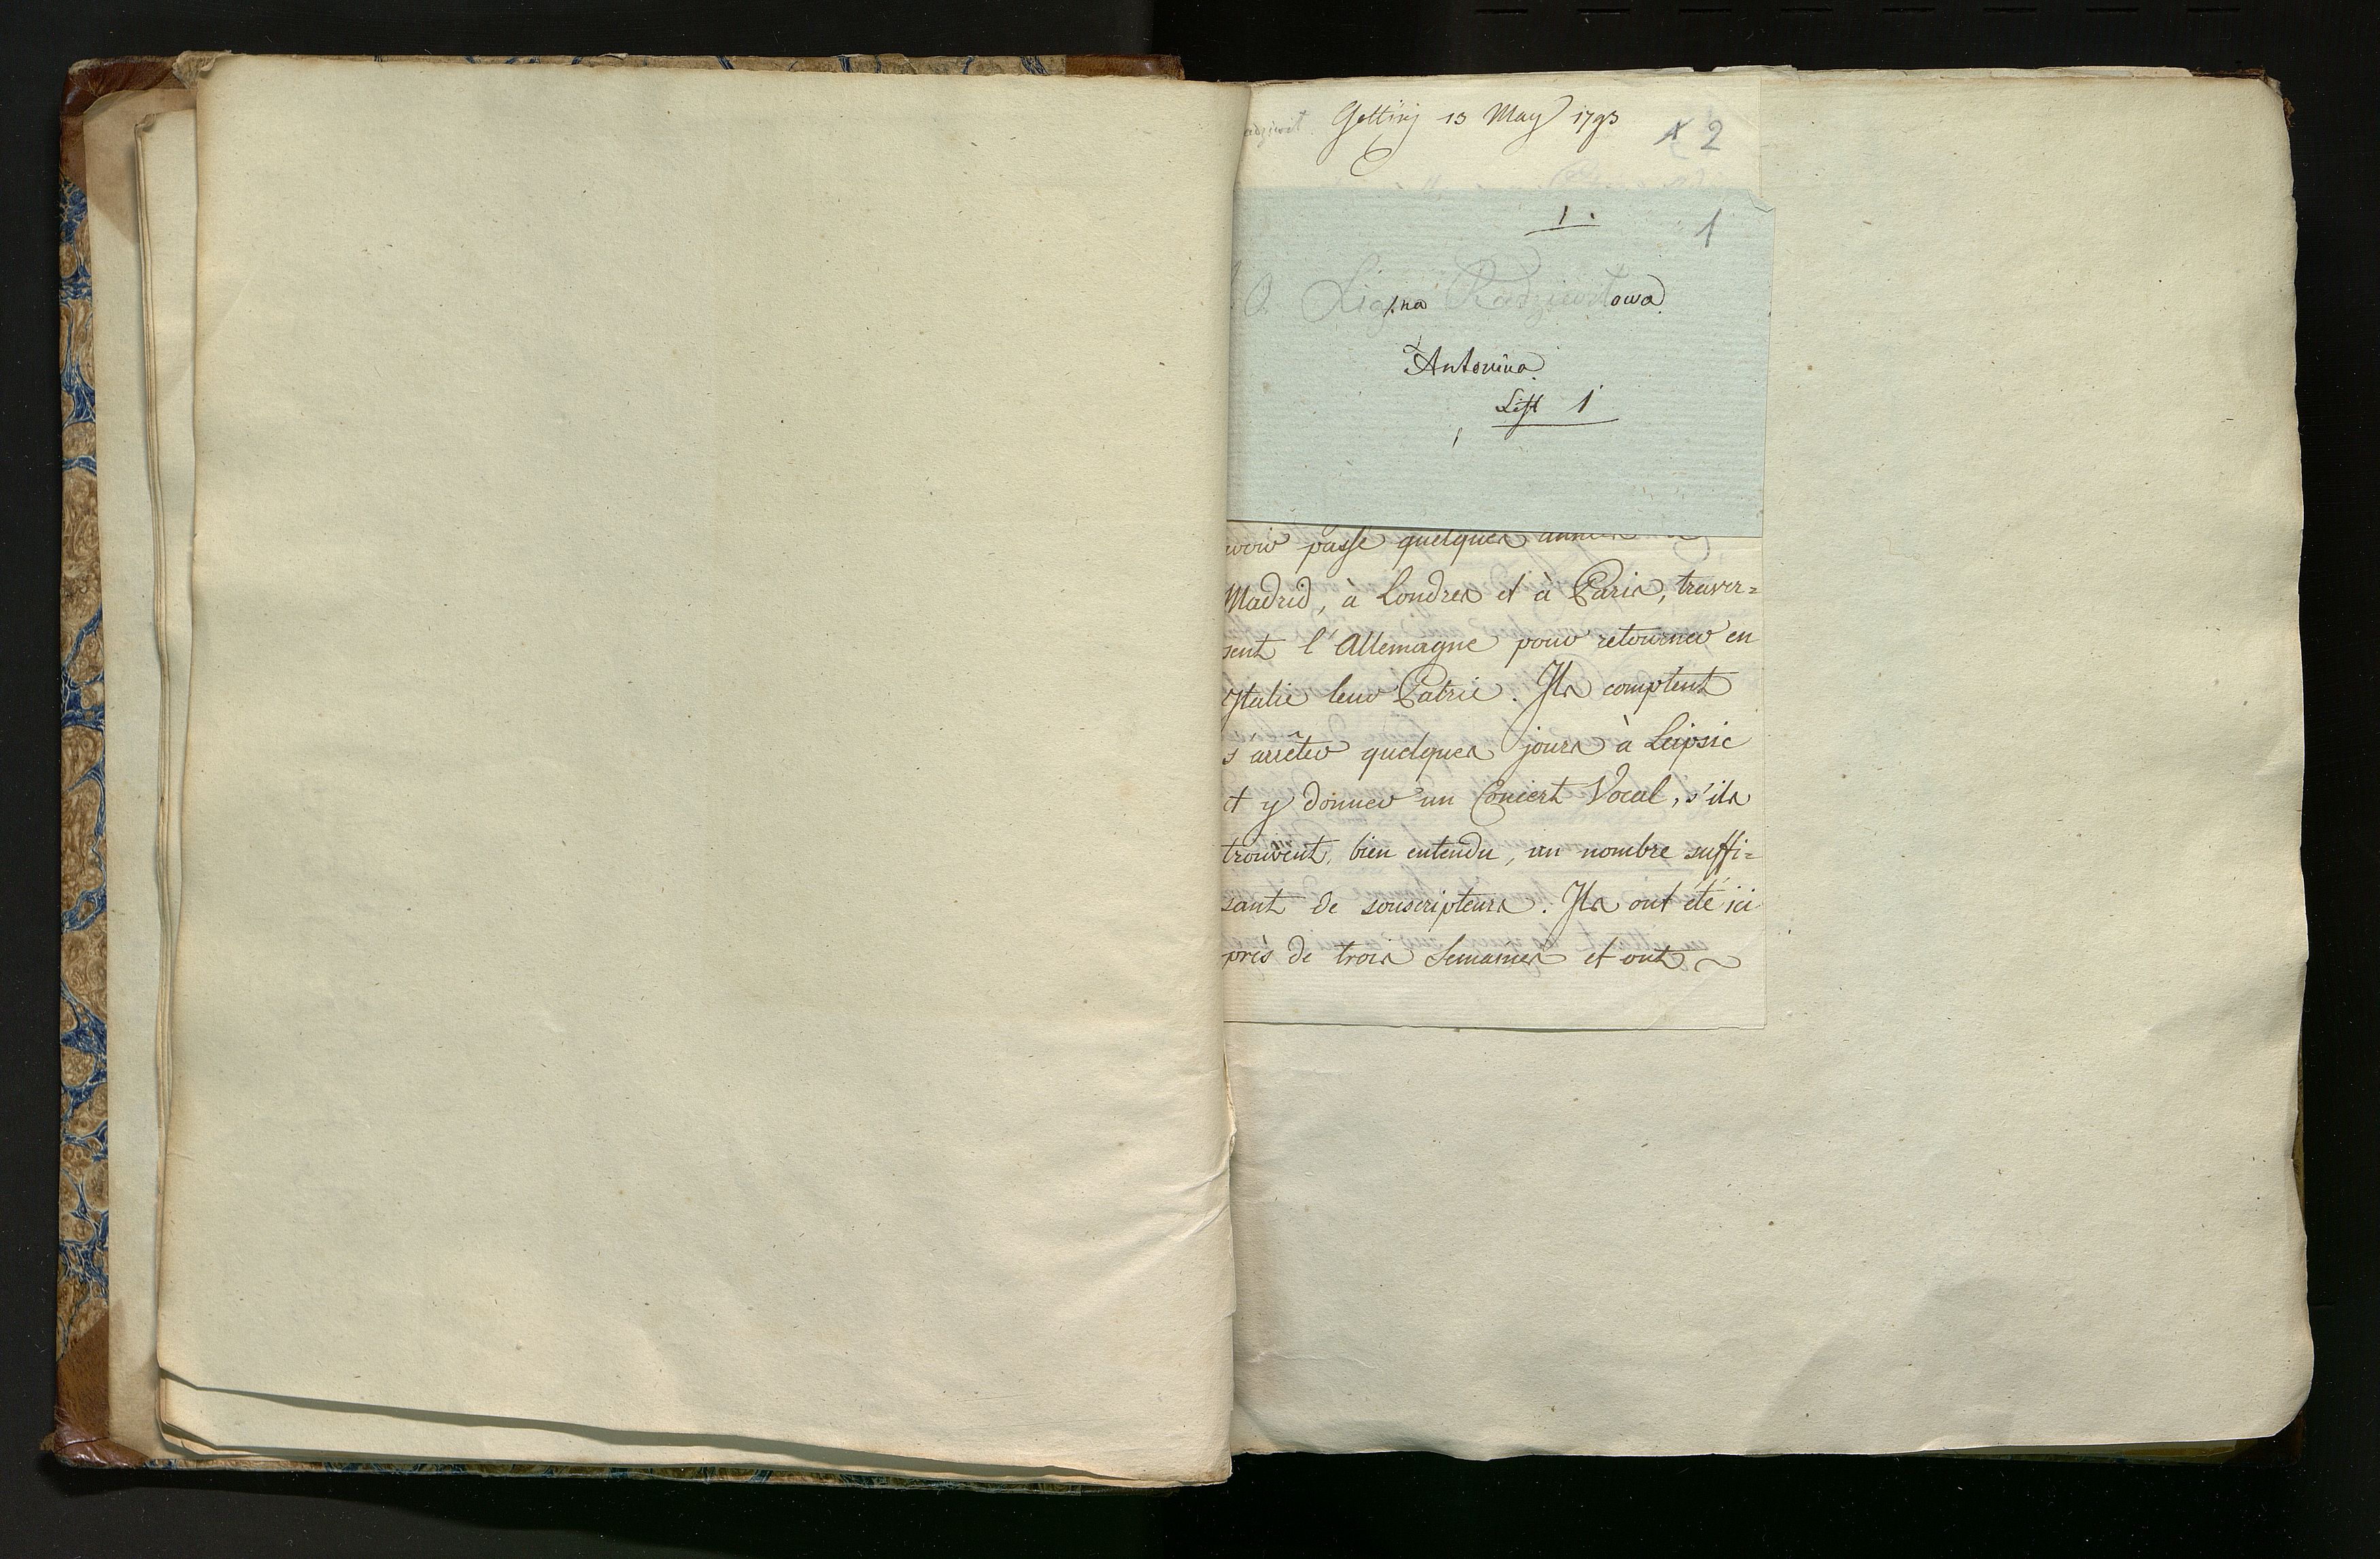 Gotting 13 May 1793
2
1.
1
Xiężna Radziwiłowa
Antonina
List 1
passé quelques années
Madrid, à Londres et à Paris, traver=
sent l'Allemagne pour retourner en
Italie leur Patrie. Ils comptent
s'arrêter quelques jours à Leipsic
et y donner un Concert Vocal, s'ils
trouvent, bien entendu, un nombre suffi=
sant de souscripteurs. Ils ont été ici
près de trois Semaines et ont